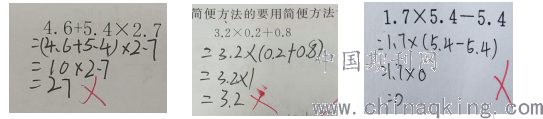 4.6+5.4×2.7
=(4.6+5.4)×2.7
=10×2.7
=27
简便方法的要用简便方法
3.2×0.2+0.8
=3.2×(0.2+0.8)
=3.2×1
=3.2
1.7×5.4-5.4
=1.7×(5.4-5.4)
=1.7×0
=0
中国期刊网
www.chinaqking.com